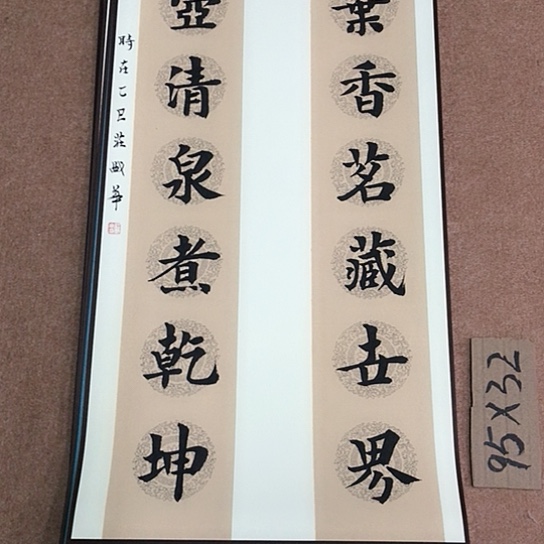 葉香茗藏世界
壺清泉煮乾坤
時在乙丑莊
95X32